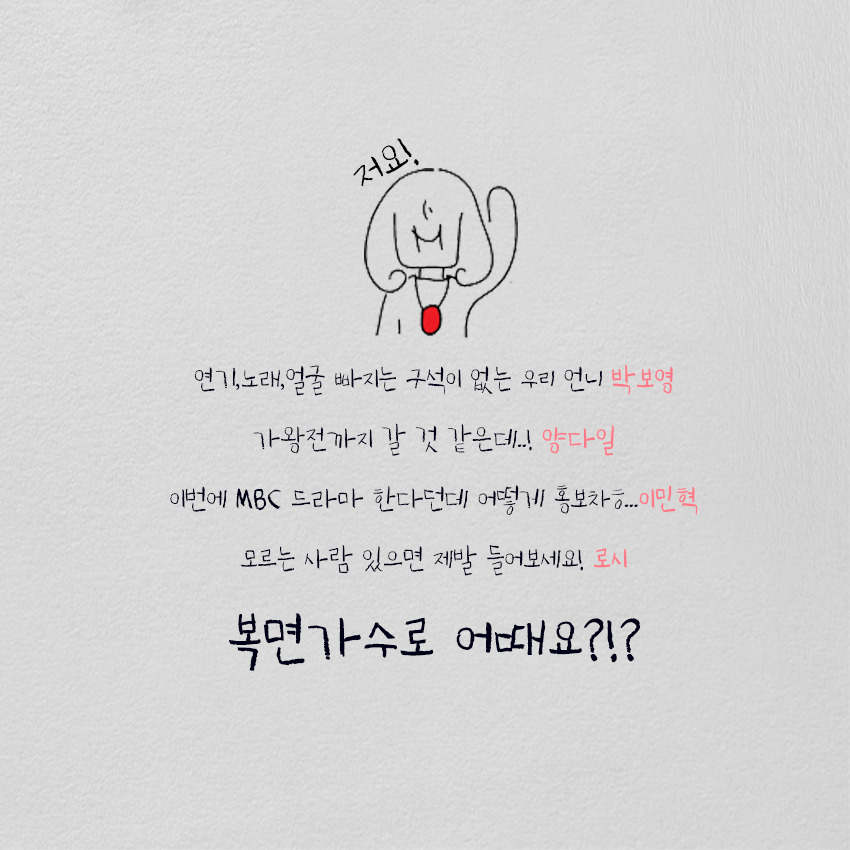 저요!
연기,노래,얼굴 빠지는 구석이 없는 우리 언니 박보영
가왕전까지 갈 것 같은데..! 양다일
이번에 MBC 드라마 한다던데 어떻게 홍보차ㅎ...이민혁
모르는 사람 있으면 제발 들어보세요! 로시
복면가수로 어때요?!?